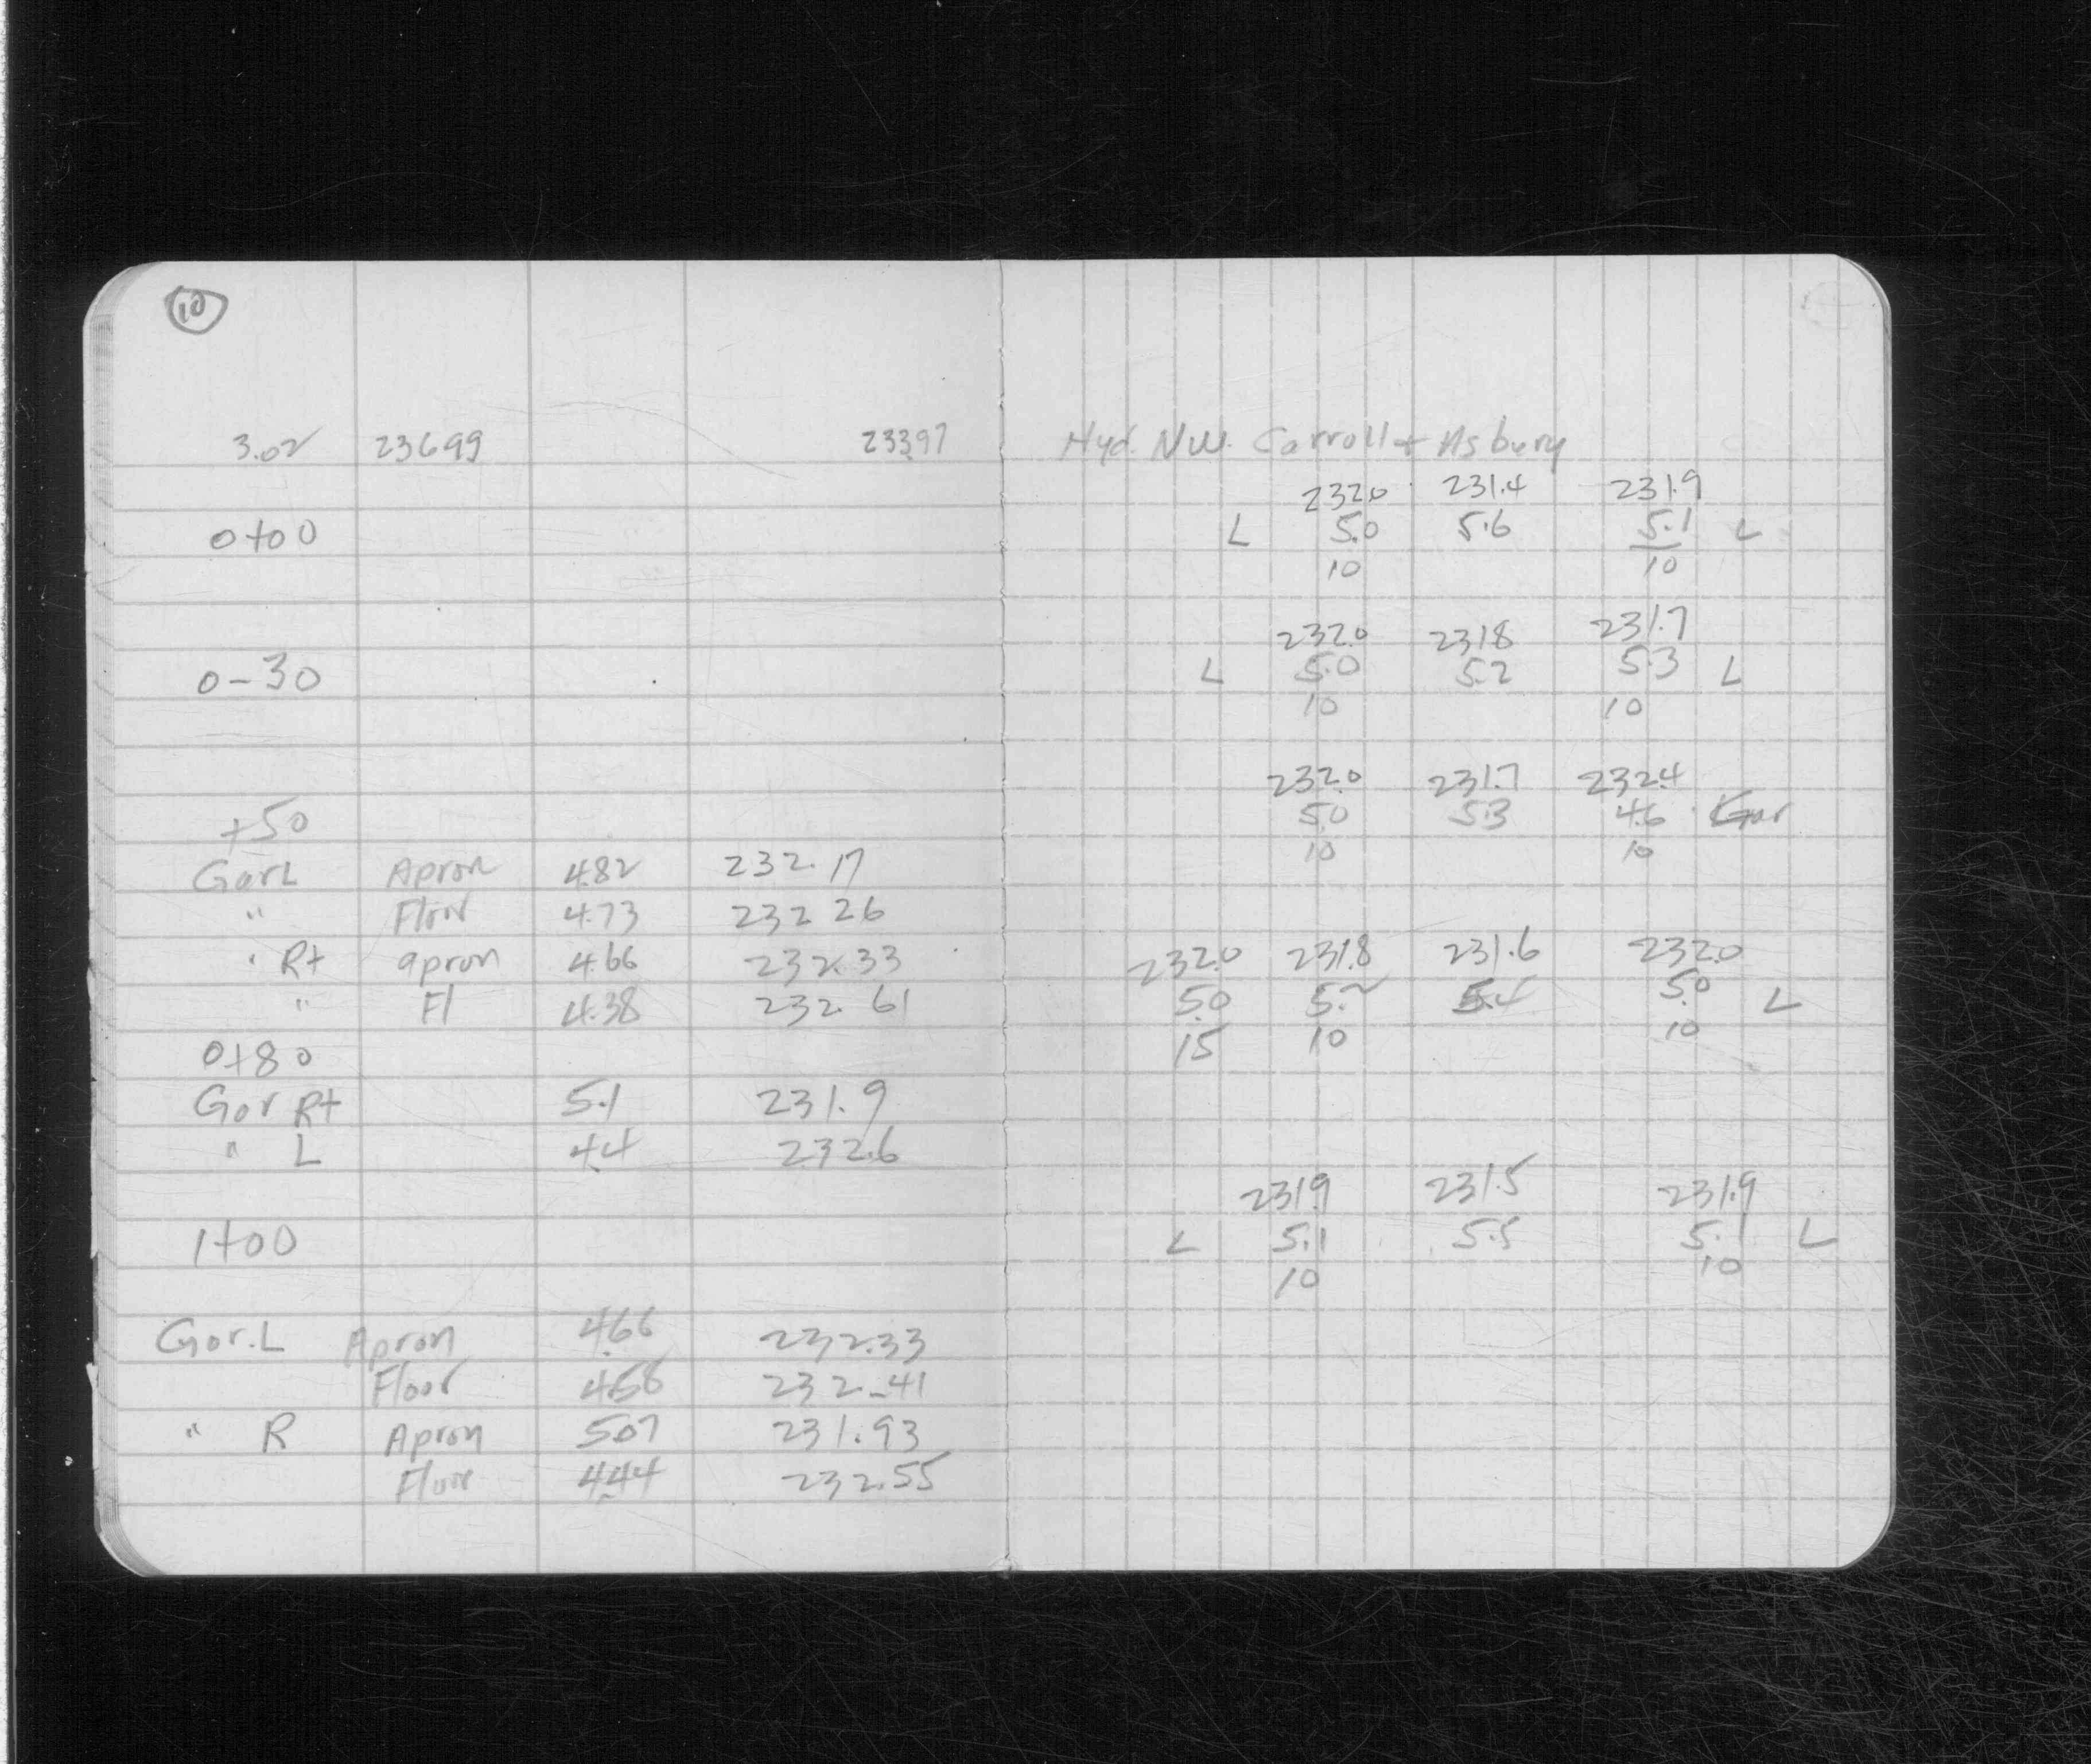 10
3.02 236.99 233.97 Hyd. N.W. Carroll + Asbury
232.0 231.4 231.9
0+00 L 5.0 5.6 5.1 L
10 10
232.0 231.8 231.7
0-30 L 5.0 5.2 5.3 L
10 10
232.0 231.7 232.4
+50 5.0 5.3 4.6 Gar
10 10
Gar L Apron 4.82 232.17
" Floor 4.73 232.26
" Rt apron 4.66 232.33
" Fl 4.38 232.61
232.0 231.8 231.6 232.0
5.0 5.2 5.4 5.0 L
0+80 15 10 10
Gar Rt 5.1 231.9
" L 4.4 232.6
231.9 231.5 231.9
1+00 L 5.1 5.5 5.1 L
10 10
Gar. L Apron 4.66 232.33
Floor 4.58 232.41
" R Apron 5.07 231.93
Floor 4.44 232.55